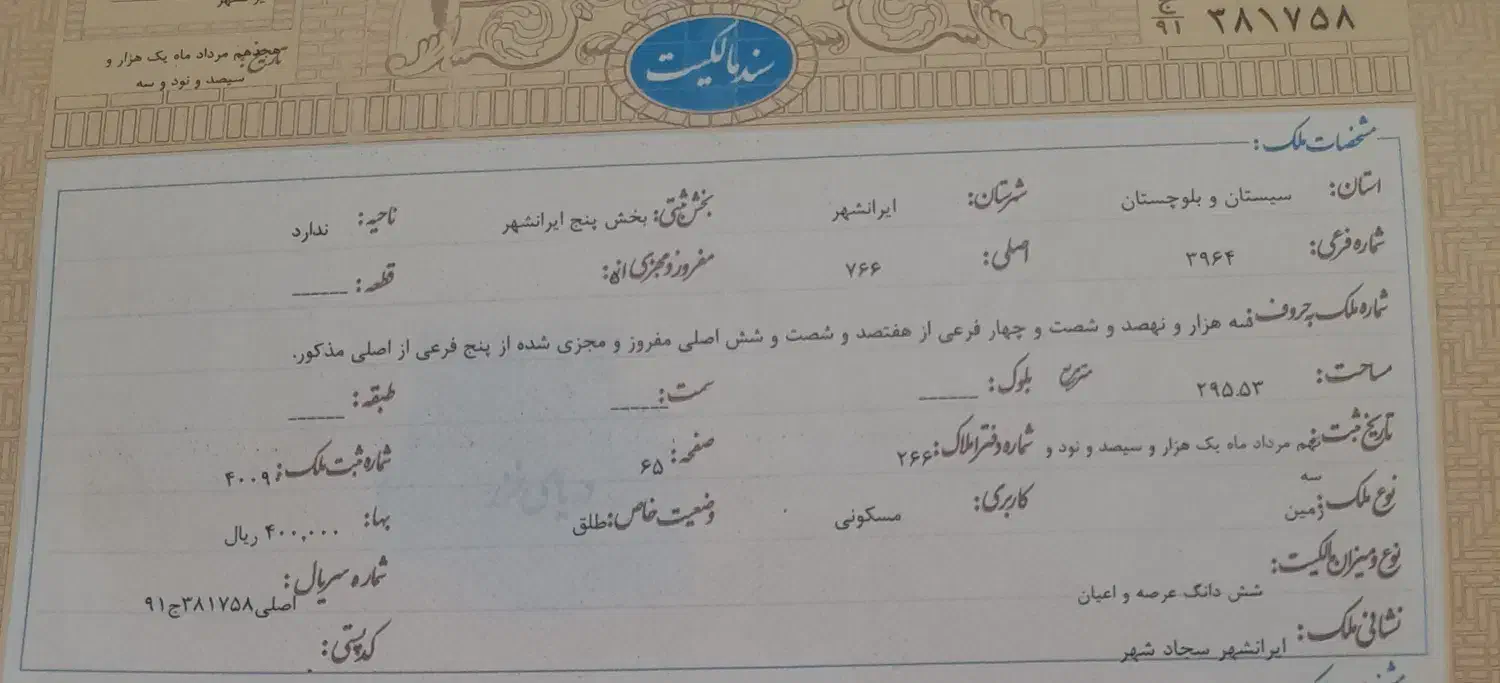 ج
۹۱ ۳۸۱۷۵۸
هیجدهم مرداد ماه یک هزار و
سیصد و نود و سه
سند مالکیت
مشخصات ملک:
استان: سیستان و بلوچستان شهرستان: ایرانشهر بخش ثبتی: بخش پنج ایرانشهر ناحیه: ندارد
شماره فرعی: ۳۹۶۴ اصلی: ۷۶۶ مفروز و مجزی از: ۵ قطعه: ______
شماره ملک به حروف: سه هزار و نهصد و شصت و چهار فرعی از هفتصد و شصت و شش اصلی مفروز و مجزی شده از پنج فرعی از اصلی مذکور.
مساحت: ۲۹۵.۵۳ مترمربع بلوک: ______ سمت: ______ طبقه: ______
تاریخ ثبت: نهم مرداد ماه یک هزار و سیصد و نود و سه شماره دفتر املاک: ۲۶۶ صفحه: ۶۵ شماره ثبت ملک: ۴۰۰۹
نوع ملک: زمین کاربری: مسکونی وضعیت خاص: طلق بها: ۴۰۰,۰۰۰ ریال
نوع و میزان مالکیت: شش دانگ عرصه و اعیان شماره سریال: اصلی۳۸۱۷۵۸ج۹۱
نشانی ملک: ایرانشهر سجاد شهر کد پستی: